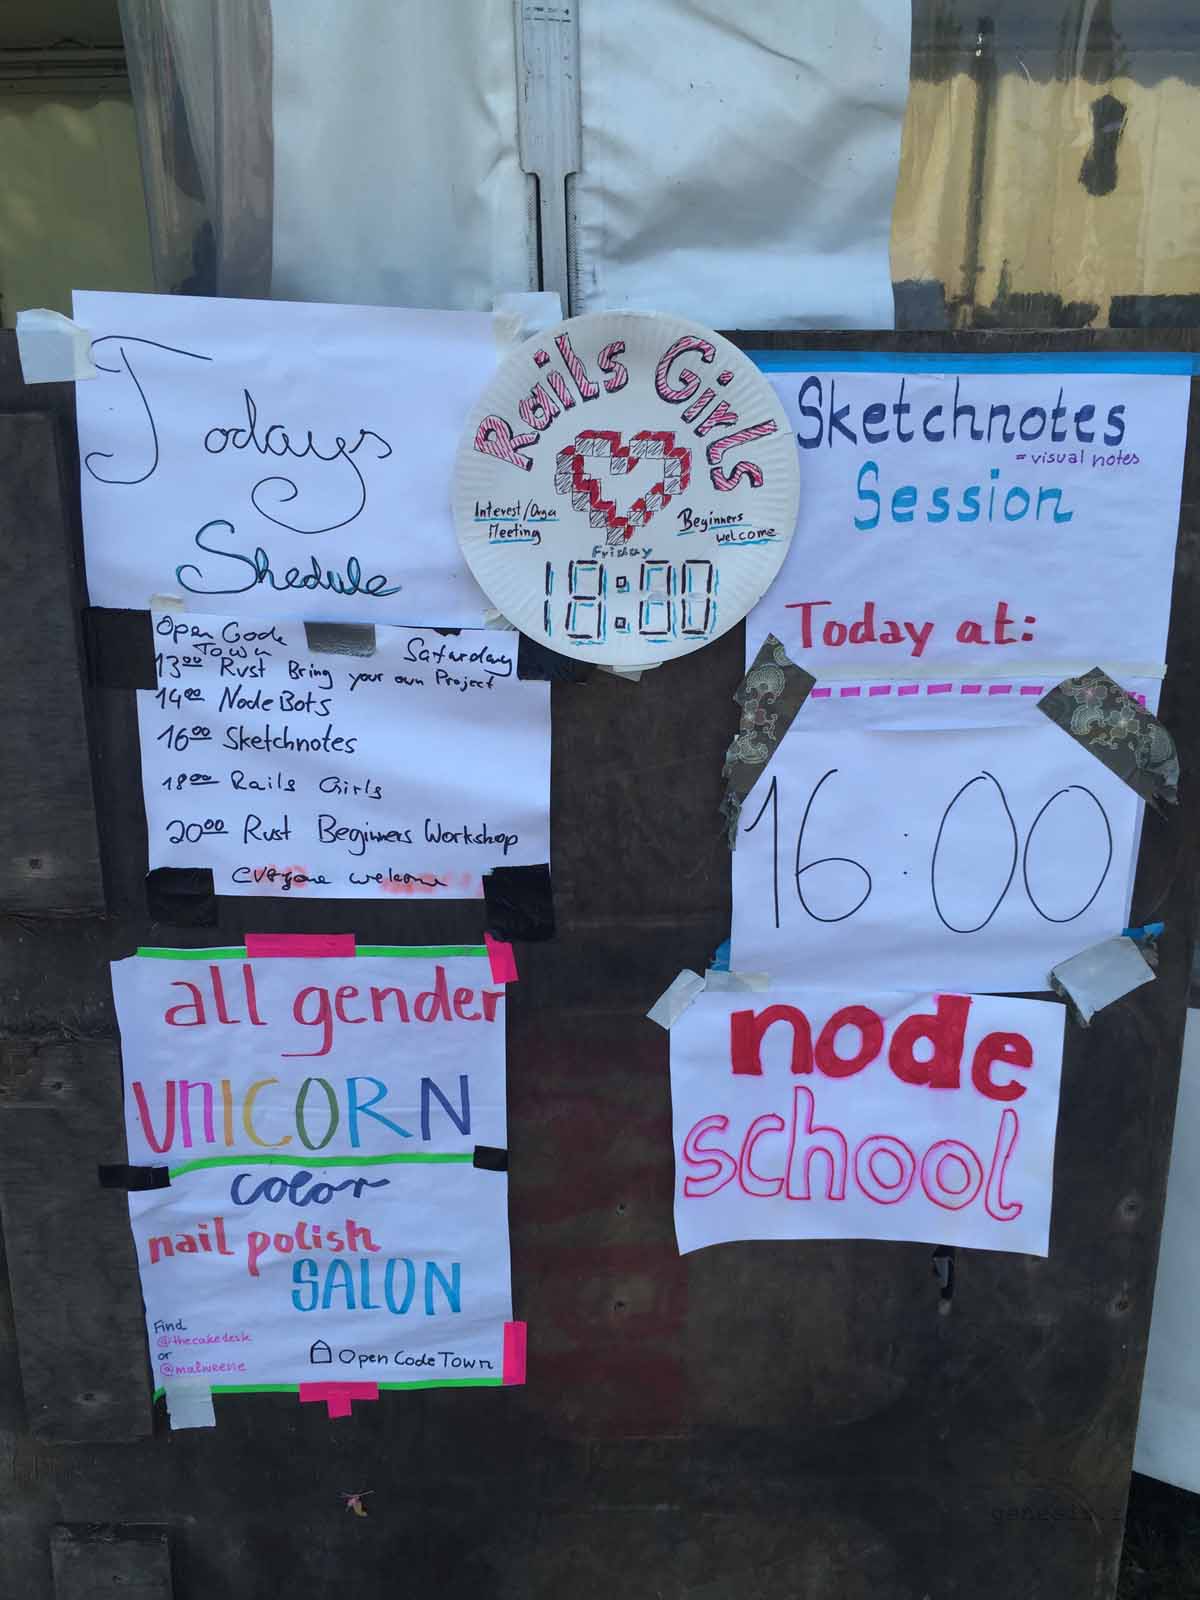 Todays
Shedule
Open Code
Town
Saturday
13⁰⁰ Rust Bring your own Project
14⁰⁰ NodeBots
16⁰⁰ Sketchnotes
18⁰⁰ Rails Girls
20⁰⁰ Rust Beginners Workshop
everyone welcome
Rails Girls
Interest/Orga
Meeting
Beginners
welcome
Friday
18:00
Sketchnotes
= visual notes
Session
Today at:
16:00
all gender
UNICORN
color
nail polish
SALON
Find
@thecakedesk
or
@malweene
OpenCodeTown
node
school